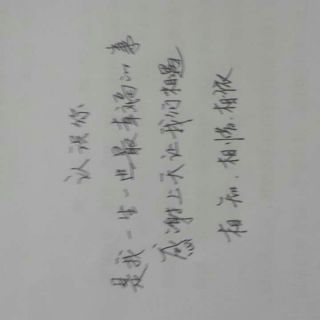 认识你
是我一生一世最幸福的事
感谢上天让我们相遇
相知、相惜、相依